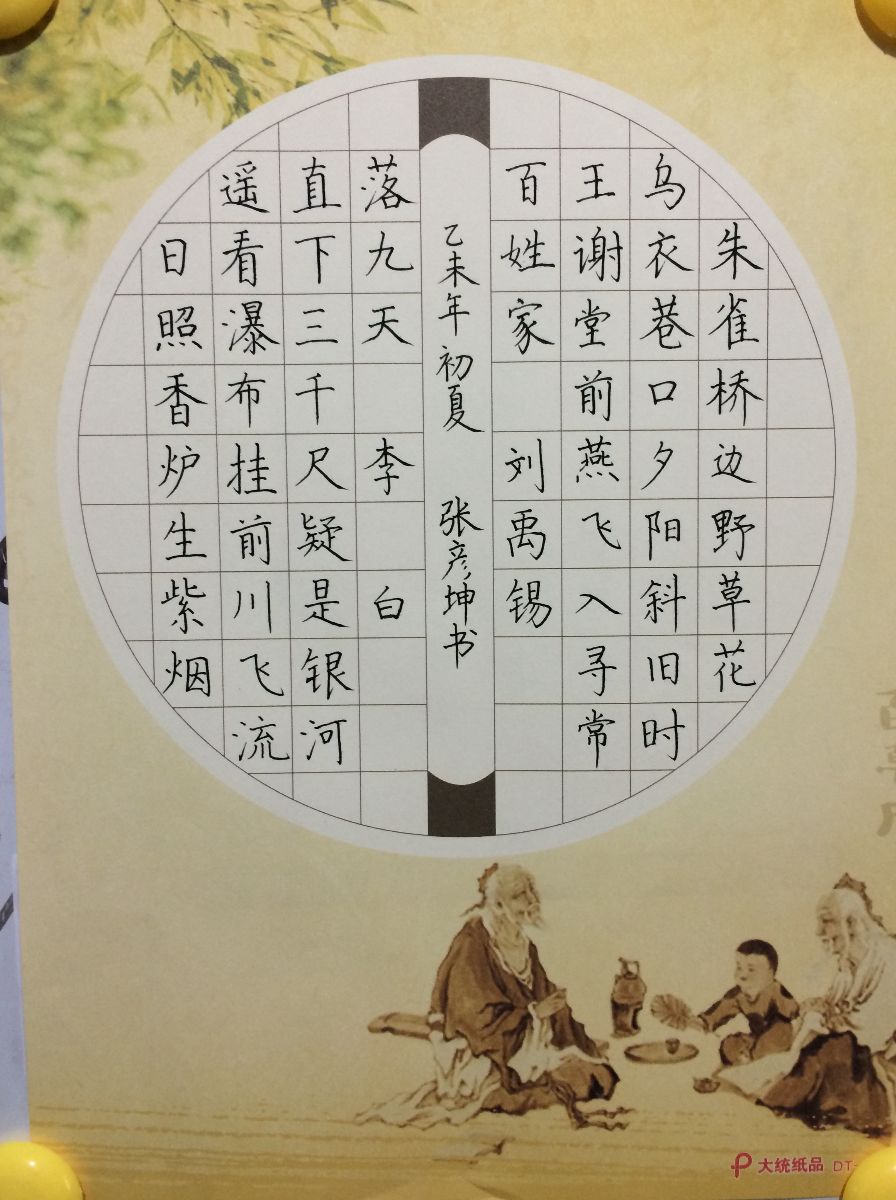 朱雀桥边野草花
乌衣巷口夕阳斜旧时
王谢堂前燕飞入寻常
百姓家 刘禹锡
日照香炉生紫烟
遥看瀑布挂前川飞流
直下三千尺疑是银河
落九天 李白
乙未年初夏 张彦坤书
大统纸品 DT-